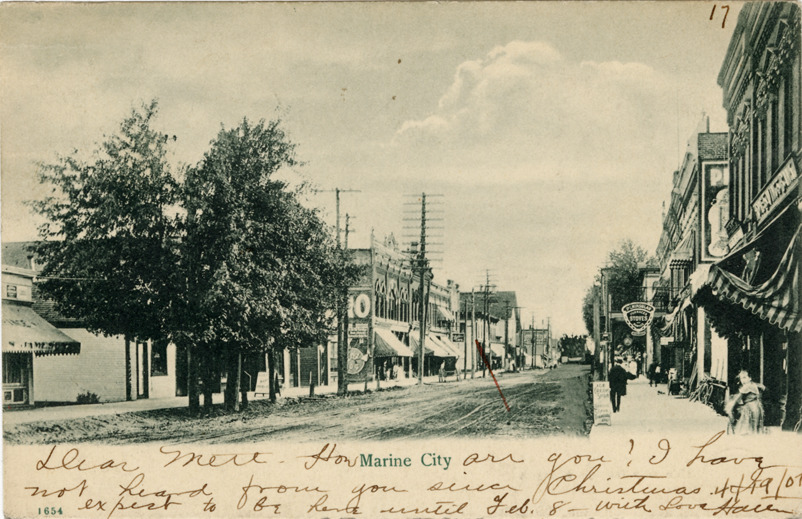 17
STOVES
Dear Mett - How Marine City are you? I have
not heard from you since Christmas.
1654 expect to be here until Feb. 8 - with Love